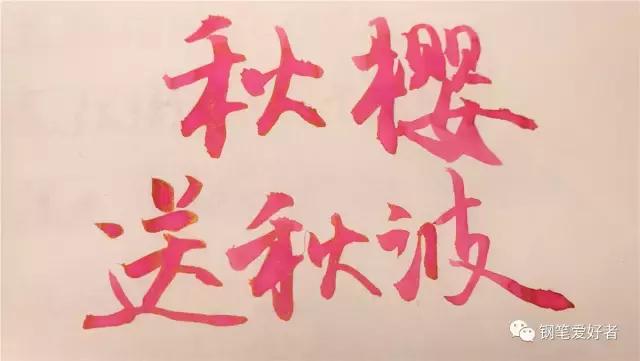 秋樱
送秋波
钢笔爱好者